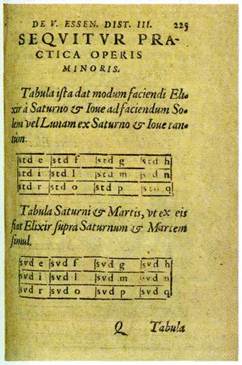 DE V. ESSEN. DIST. III. 225
SEQVITVR PRA-
CTICA OPERIS
MINORIS.
Tabula ista dat modum faciendi Eli-
xir à Saturno & Ioue ad faciendum So-
lem vel Lunam ex Saturno & Ioue tan-
tùm.
std e std f std g std h
std i std l std m std n
std r std o std p std q
Tabula Saturni & Martis, vt ex eis
fiat Elixir suprà Saturnum & Martem
simul.
svd e svd f svd g svd h
svd i svd l svd m svd n
svd r svd o svd p svd q
Q Tabula